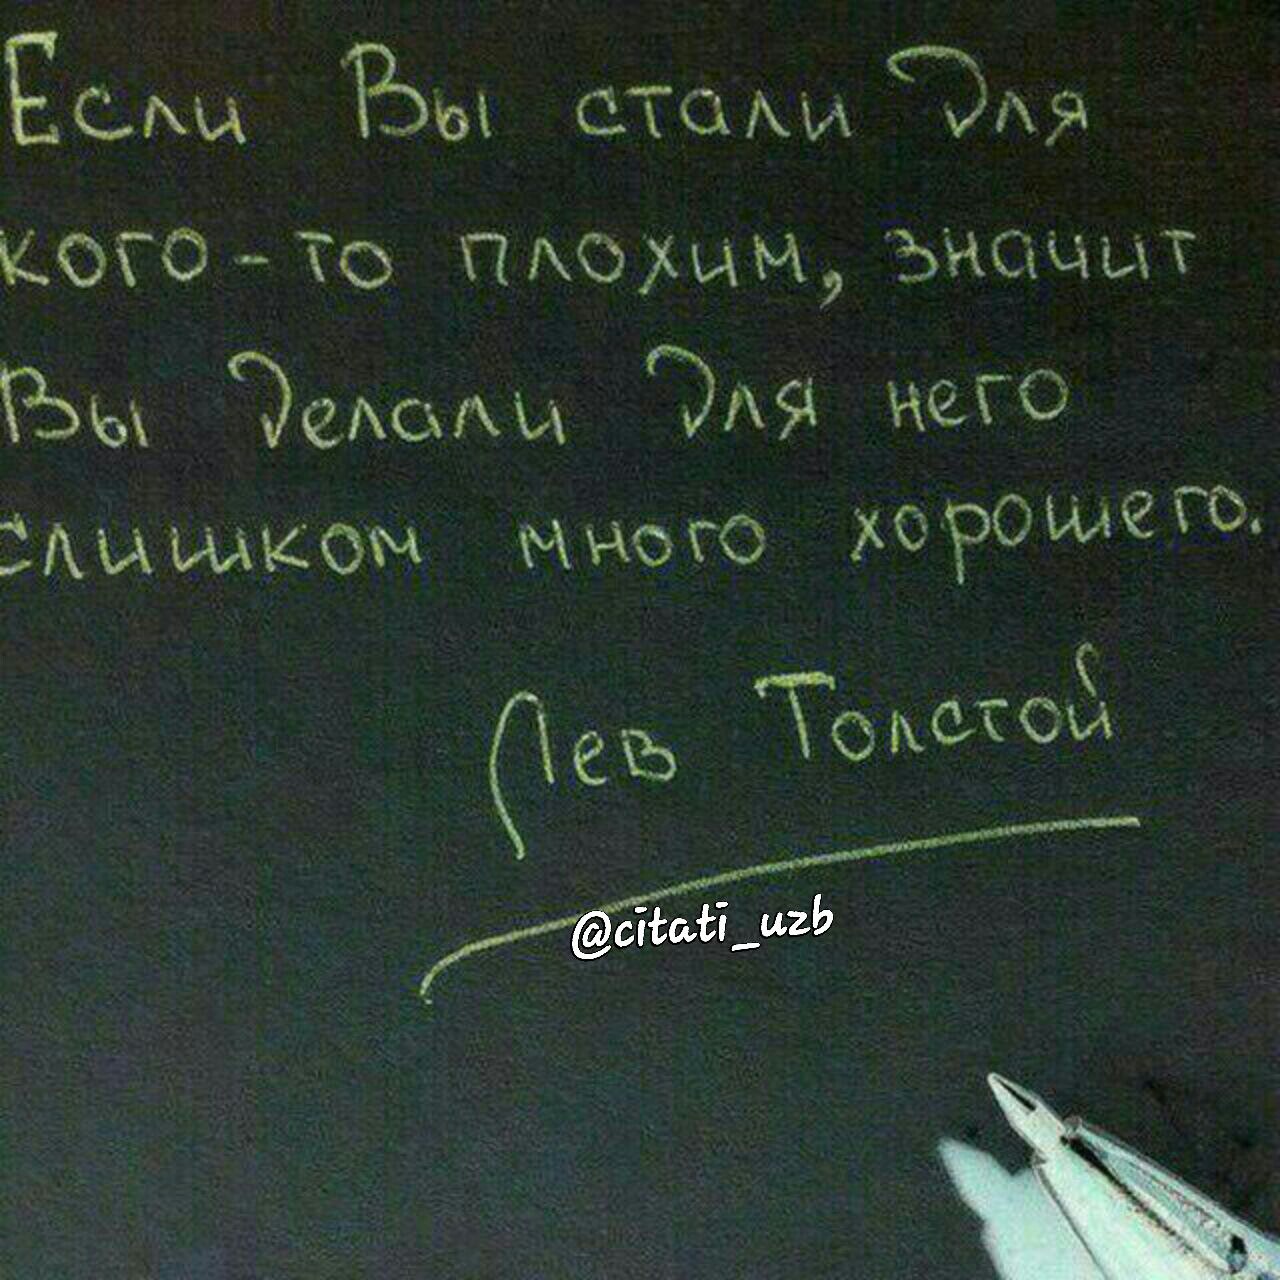 Если Вы стали для
кого-то плохим, значит
Вы делали для него
слишком много хорошего.
Лев Толстой
@citati_uzb